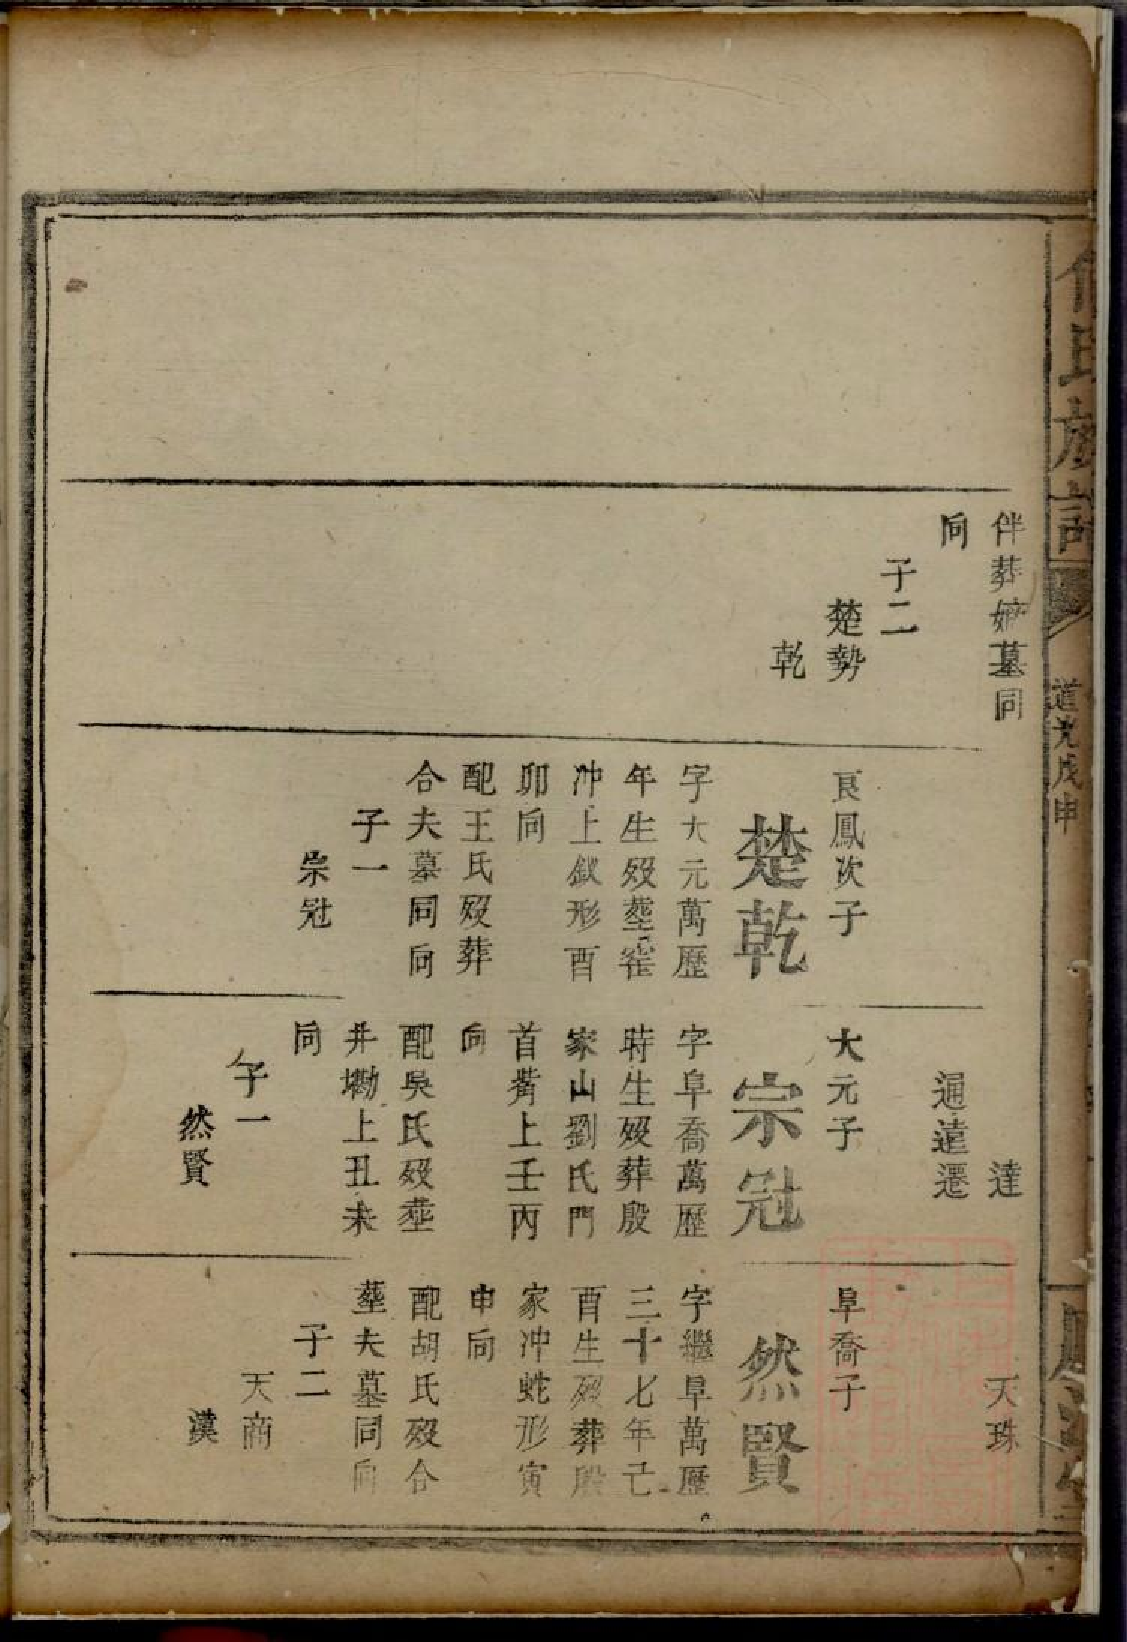 氏族譜
道光戊申
伴葬妣墓同
向
子二
楚勢
乾
良鳳次子
楚乾
字大元萬歷
年生歿塟
冲上釵形酉
卯向
配王氏歿葬
合夫墓同向
子一
宗冠
達
通遠還
大元子
宗冠
字阜喬萬歷
時生歿葬殷
家山劉氏門
首嘴上壬丙
向
配吳氏歿塟
井墈上丑未
向
子一
然賢
天珠
阜喬子
然賢
字繼阜萬歷
三十七年己
酉生歿葬殷
家冲蛇形寅
申向
配胡氏歿合
塟夫墓同向
子二
天商
漢